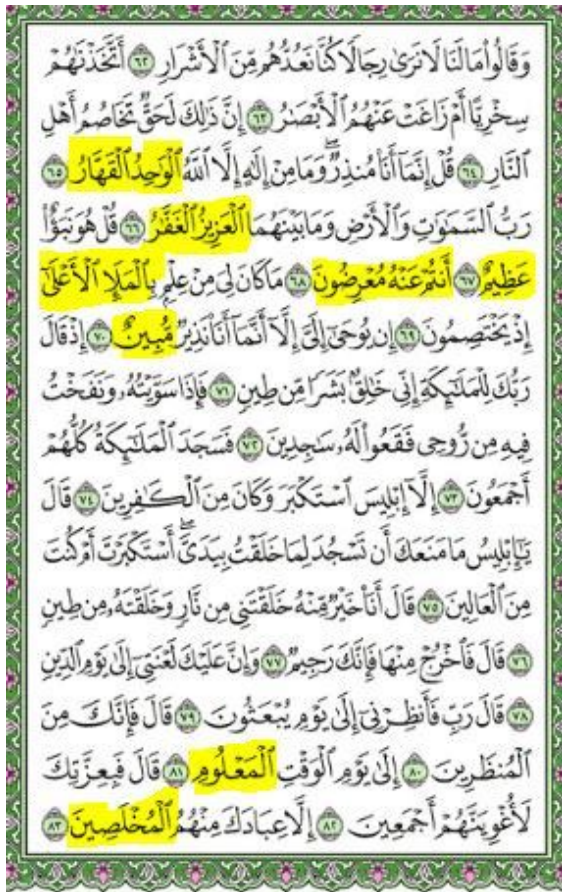 وَقَالُوا۟ مَا لَنَا لَا نَرَىٰ رِجَالًا كُنَّا نَعُدُّهُم مِّنَ ٱلْأَشْرَارِ ٦٢ أَتَّخَذْنَٰهُمْ
سِخْرِيًّا أَمْ زَاغَتْ عَنْهُمُ ٱلْأَبْصَٰرُ ٦٣ إِنَّ ذَٰلِكَ لَحَقٌّ تَخَاصُمُ أَهْلِ
ٱلنَّارِ ٦٤ قُلْ إِنَّمَآ أَنَا۠ مُنذِرٌ ۖ وَمَا مِنْ إِلَٰهٍ إِلَّا ٱللَّهُ ٱلْوَٰحِدُ ٱلْقَهَّارُ ٦٥
رَبُّ ٱلسَّمَٰوَٰتِ وَٱلْأَرْضِ وَمَا بَيْنَهُمَا ٱلْعَزِيزُ ٱلْغَفَّٰرُ ٦٦ قُلْ هُوَ نَبَؤٌا۟
عَظِيمٌ ٦٧ أَنتُمْ عَنْهُ مُعْرِضُونَ ٦٨ مَا كَانَ لِىَ مِنْ عِلْمٍۭ بِٱلْمَلَإِ ٱلْأَعْلَىٰٓ
إِذْ يَخْتَصِمُونَ ٦٩ إِن يُوحَىٰٓ إِلَىَّ إِلَّآ أَنَّمَآ أَنَا۠ نَذِيرٌ مُّبِينٌ ٧٠ إِذْ قَالَ
رَبُّكَ لِلْمَلَٰٓئِكَةِ إِنِّى خَٰلِقٌۢ بَشَرًا مِّن طِينٍ ٧١ فَإِذَا سَوَّيْتُهُۥ وَنَفَخْتُ
فِيهِ مِن رُّوحِى فَقَعُوا۟ لَهُۥ سَٰجِدِينَ ٧٢ فَسَجَدَ ٱلْمَلَٰٓئِكَةُ كُلُّهُمْ
أَجْمَعُونَ ٧٣ إِلَّآ إِبْلِيسَ ٱسْتَكْبَرَ وَكَانَ مِنَ ٱلْكَٰفِرِينَ ٧٤ قَالَ
يَٰٓإِبْلِيسُ مَا مَنَعَكَ أَن تَسْجُدَ لِمَا خَلَقْتُ بِيَدَىَّ ۖ أَسْتَكْبَرْتَ أَمْ كُنتَ
مِنَ ٱلْعَالِينَ ٧٥ قَالَ أَنَا۠ خَيْرٌ مِّنْهُ ۖ خَلَقْتَنِى مِن نَّارٍ وَخَلَقْتَهُۥ مِن طِينٍ
٧٦ قَالَ فَٱخْرُجْ مِنْهَا فَإِنَّكَ رَجِيمٌ ٧٧ وَإِنَّ عَلَيْكَ لَعْنَتِىٓ إِلَىٰ يَوْمِ ٱلدِّينِ
٧٨ قَالَ رَبِّ فَأَنظِرْنِىٓ إِلَىٰ يَوْمِ يُبْعَثُونَ ٧٩ قَالَ فَإِنَّكَ مِنَ
ٱلْمُنظَرِينَ ٨٠ إِلَىٰ يَوْمِ ٱلْوَقْتِ ٱلْمَعْلُومِ ٨١ قَالَ فَبِعِزَّتِكَ
لَأُغْوِيَنَّهُمْ أَجْمَعِينَ ٨٢ إِلَّا عِبَادَكَ مِنْهُمُ ٱلْمُخْلَصِينَ ٨٣